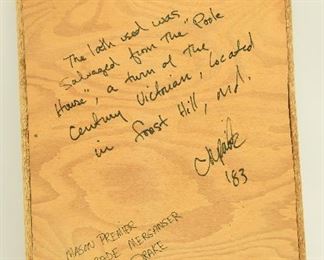 The lath used was
salvaged from The "Poole
House", a turn of The
Century Victorian, located
in Forest Hill, Md.
'83
MASON PREMIER
GRADE MERGANSER
DRAKE